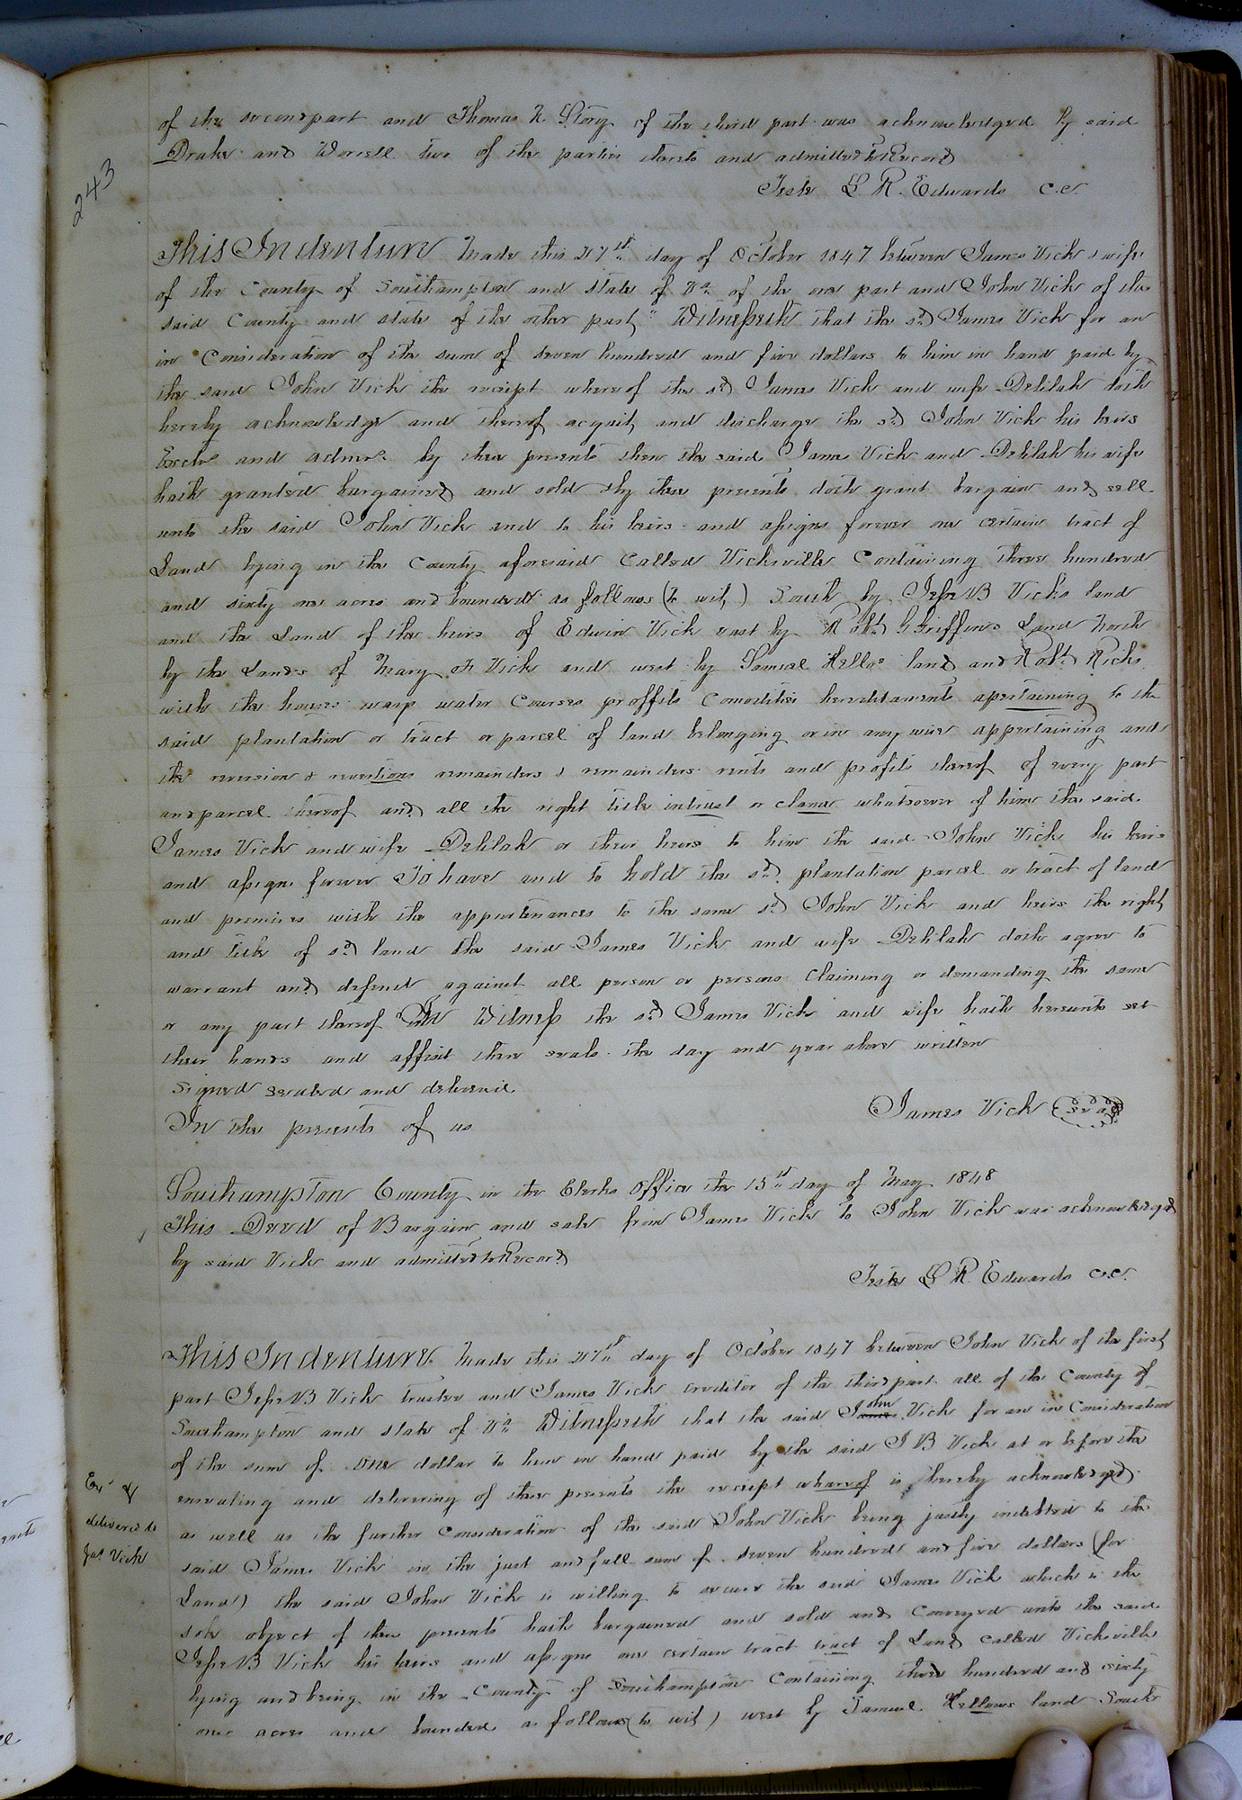 243
of the second part and Thomas N Story of the third part was acknowledged by said
Drake and Worrell two of the parties thereto and admitted to Record
Teste L R. Edwards c.c.
This Indenture Made this 27th day of October 1847 between James Vick & wife
of the County of Southampton and State of Va of the one part and John Vick of the
said County and state of the other part Witnesseth that the sd James Vick for an
in Consideration of the sum of seven hundred and five dollars to him in hand paid by
the said John Vick the receipt whereof the sd James Vick and wife Delilah doth
hereby acknowledge and thereof acquit and discharge the sd John Vick his heirs
Exectr and admrs by these presents then the said James Vick and Delilah his wife
hath granted bargained and sold & by these presents doth grant bargain and sell
unto the said John Vick and to his heirs and assigns forever one certain tract of
Land lying in the County aforesaid Called Vicksville Containing three hundred
and sixty one acres and bounded as follows (to wit) South by Jesse B Vicks land
and the Land of the heirs of Edwin Vick east by Robt G Griffins Land North
by the Lands of Mary H Vick and west by Samuel Kellos land and Robt Ricks
with the houses ways water Courses proffits Comodities hereditaments apertaining to the
said plantation or tract or parcel of land belonging or in any wise appertaining and
the revision & revertions remainders & remainders rents and profits thereof of every part
and parcel thereof and all the right title intrust or clame whatsoever of him the said
James Vick and wife Delilah or their heirs to him the said John Vick his heirs
and assigns forever To have and to hold the sd plantation parcel or tract of land
and premises with the appurtenances to the same sd John Vick and heirs the right
and title of sd land the said James Vick and wife Delilah doth agree to
warrant and defend against all person or persons Claiming or demanding the same
or any part thereof In Witness the sd James Vick and wife hath hereunto set
their hands and affixt there seals the day and year above written
Signed sealed and delivered
In the presents of us
James Vick (seal)
Southampton County in the Clerks Office the 15th day of May 1848
This Deed of Bargain and sale from James Vick to John Vick was acknowledged
by said Vick and admitted to Record
Teste L R Edwards c.c.
This Indenture Made this 27th day of October 1847 between John Vick of the first
part Jesse B Vick trustee and James Vick creditor of the third part all of the County of
Southampton and state of Va Witnesseth that the said John Vick for an in Consideration
of the sum of one dollar to him in hand paid by the said J B Vick at or before the
ensealing and delivering of these presents the receipt whareof is hereby acknowledged
as well as the further Consideration of the said John Vick being justly indebted to the
said James Vick in the just and full sum of seven hundred and five dollars (for
Land) the said John Vick is willing to secure the said James Vick which is the
sole object of these presents hath bargained and sold and Conveyed unto the said
Jesse B Vick his heirs and assigns one certain tract tract of Land called Vicksville
lying and being in the County of Southampton Containing three hundred and sixty
one acres and bounded as follows (to wit) west by Samuel Kellows land South
Exd &
delivered to
Jas Vick